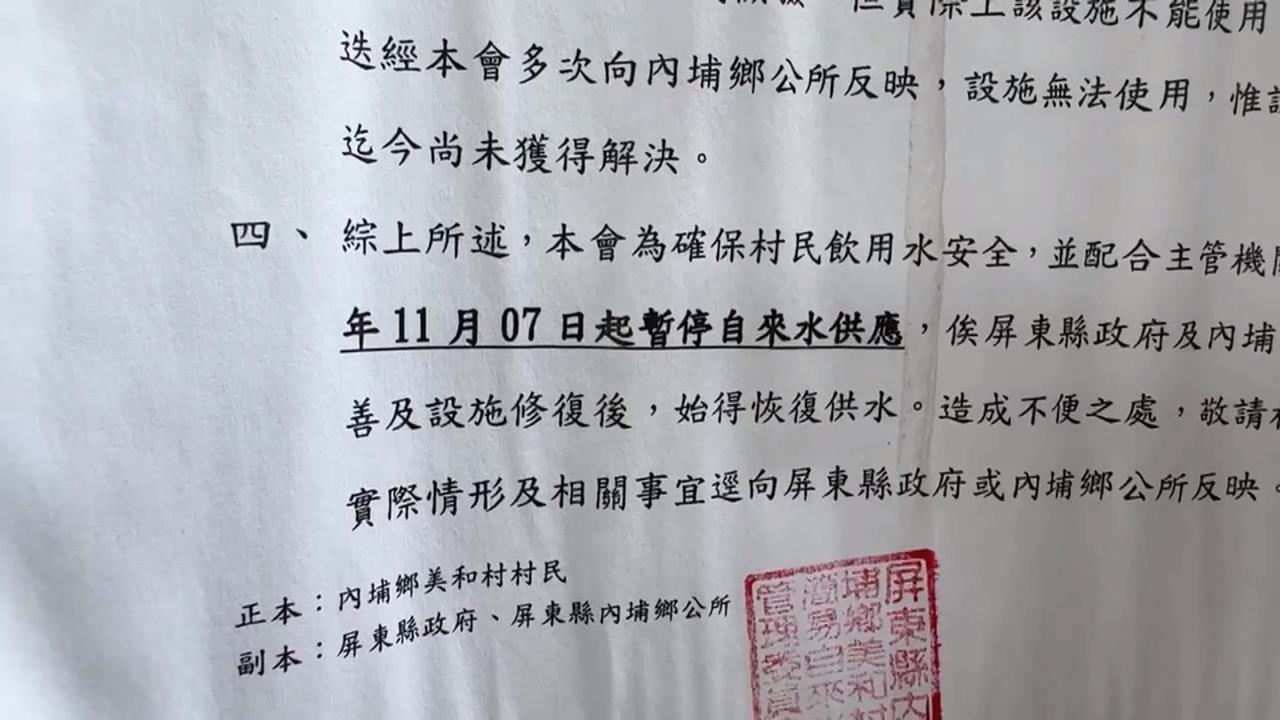 但實際上該設施不能使用
迭經本會多次向內埔鄉公所反映，設施無法使用，惟
迄今尚未獲得解決。
四、綜上所述，本會為確保村民飲用水安全，並配合主管機
年11月07日起暫停自來水供應，俟屏東縣政府及內埔
善及設施修復後，始得恢復供水。造成不便之處，敬請
實際情形及相關事宜逕向屏東縣政府或內埔鄉公所反映。
正本：內埔鄉美和村村民
副本：屏東縣政府、屏東縣內埔鄉公所
屏東縣內
埔鄉美和村
簡易自來
管理委員